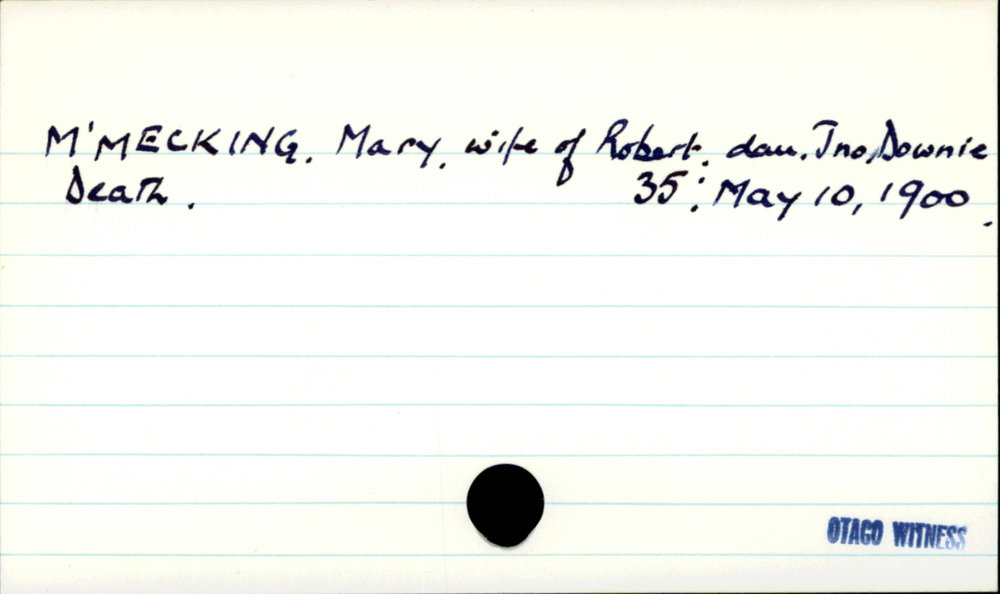 M'MECKING. Mary. wife of Robert. dau. Jno. Downie
Death. 35: May 10, 1900.
OTAGO WITNESS